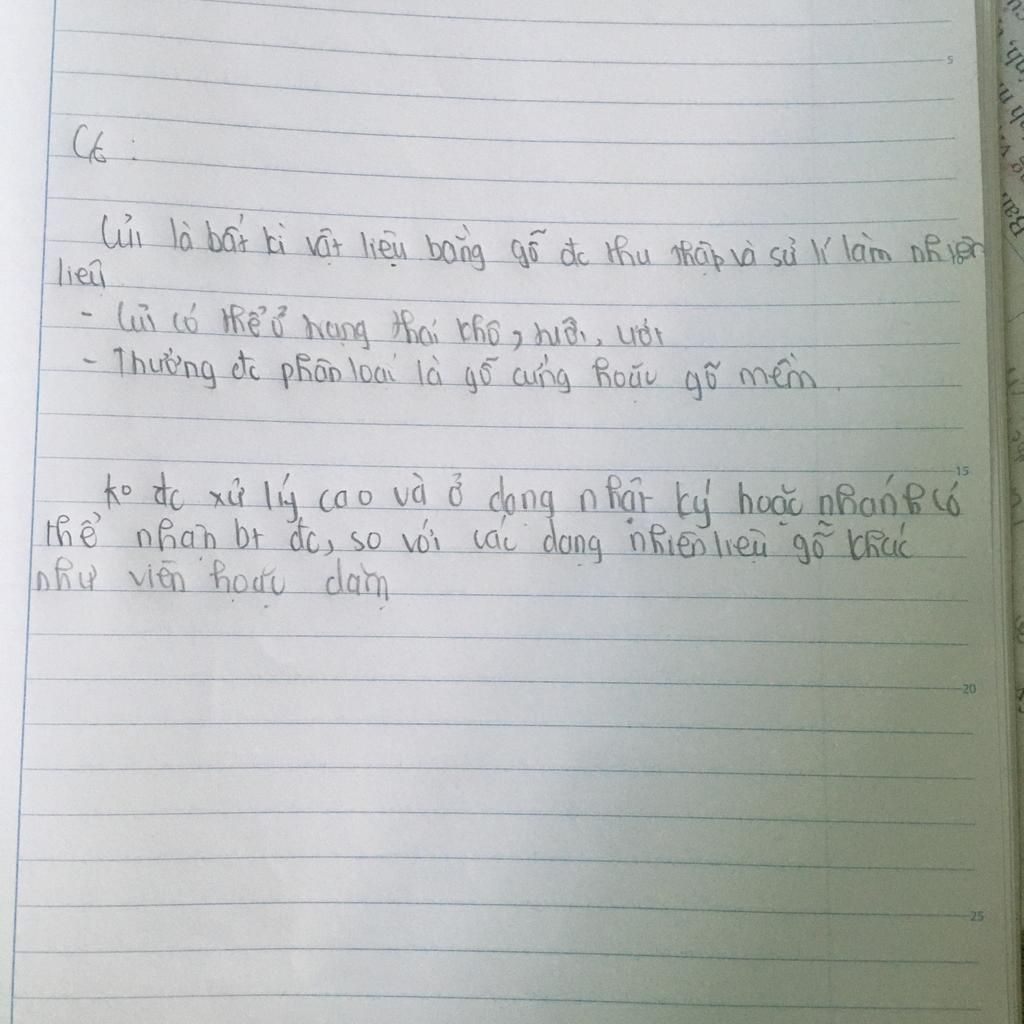 C6 :
Củi là bất kì vật liệu bằng gỗ đc thu thập và sử lí làm nhiên
liệu
- Củi có thể ở trạng thái khô, tười, ướt
- Thường đc phân loại là gỗ cứng hoặc gỗ mềm.
ko đc xử lý cao và ở dạng nhật ký hoặc nhánh có
thể nhận bt đc, so với các dạng nhiên liệu gỗ khác
như viên hoặc dăm
5
15
20
25